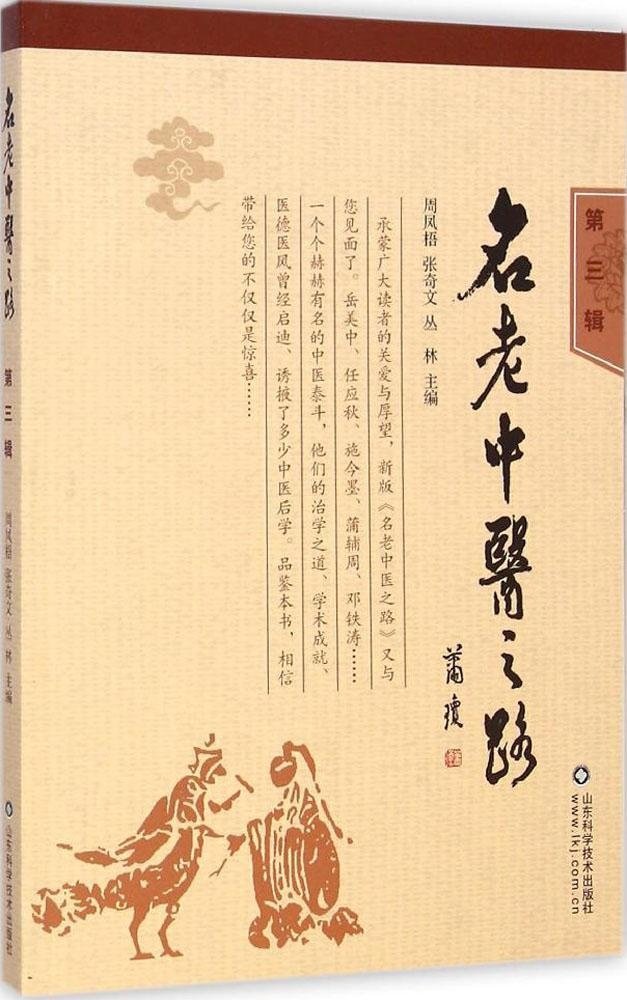 第三辑
名老中醫之路
萧璚
周凤梧 张奇文 丛 林 主编
承蒙广大读者的关爱与厚望，新版《名老中医之路》又与
您见面了。岳美中、任应秋、施今墨、蒲辅周、邓铁涛……
一个个赫赫有名的中医泰斗，他们的治学之道、学术成就、
医德医风曾经启迪、诱掖了多少中医后学。品鉴本书，相信
带给您的不仅仅是惊喜……
山东科学技术出版社
www.lkj.com.cn
名老中醫之路
第三辑
周凤梧 张奇文 丛 林 主编
山东科学技术出版社